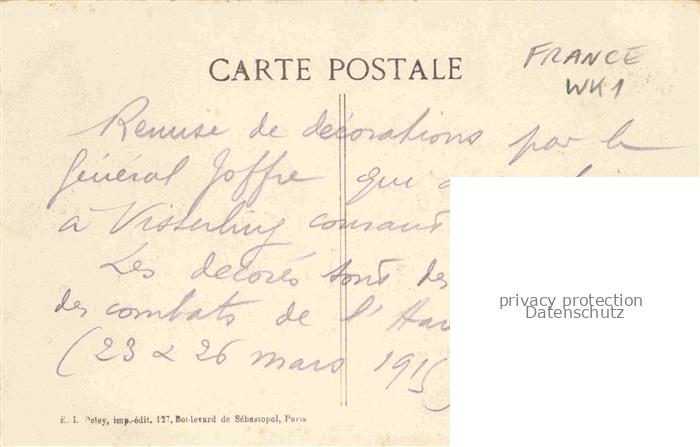 CARTE POSTALE
FRANCE
WK1
Remise de décorations par le
Général Joffre qui a
à Wesserling courant
Les decorés sont des
des combats de l'Har
(23 & 26 mars 1915
privacy protection
Datenschutz
E. L. Deley, imp.-édit. 127, Boulevard de Sébastopol, Paris